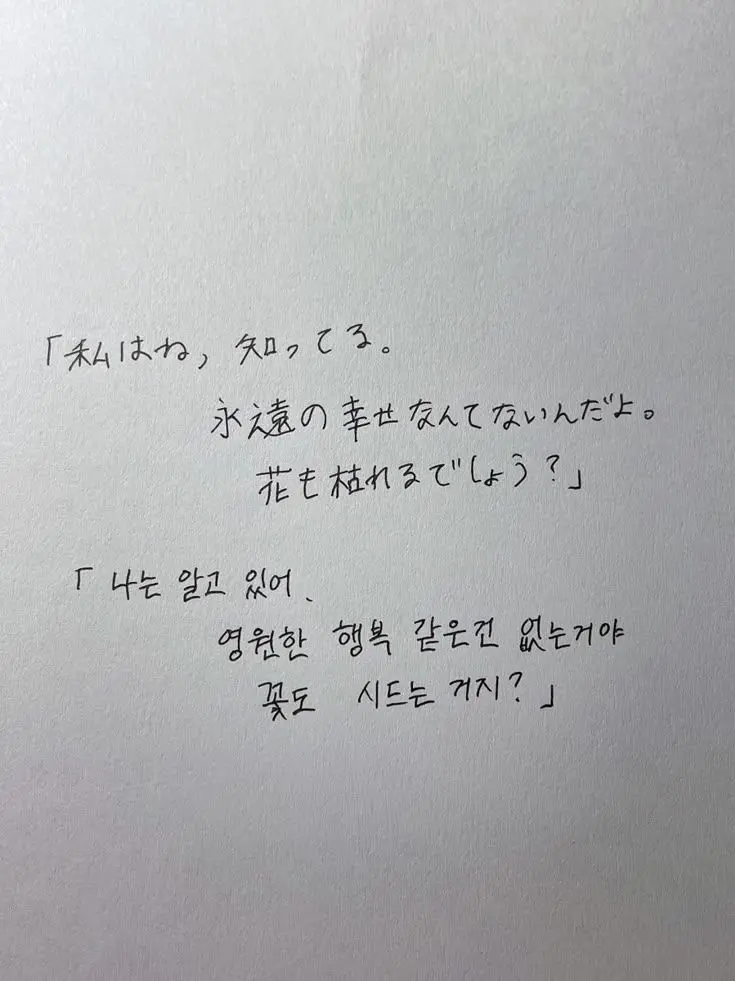 「私はね, 知ってる。
永遠の幸せなんてないんだよ。
花も枯れるでしょう?」
「나는 알고 있어.
영원한 행복 같은건 없는거야
꽃도 시드는 거지?」